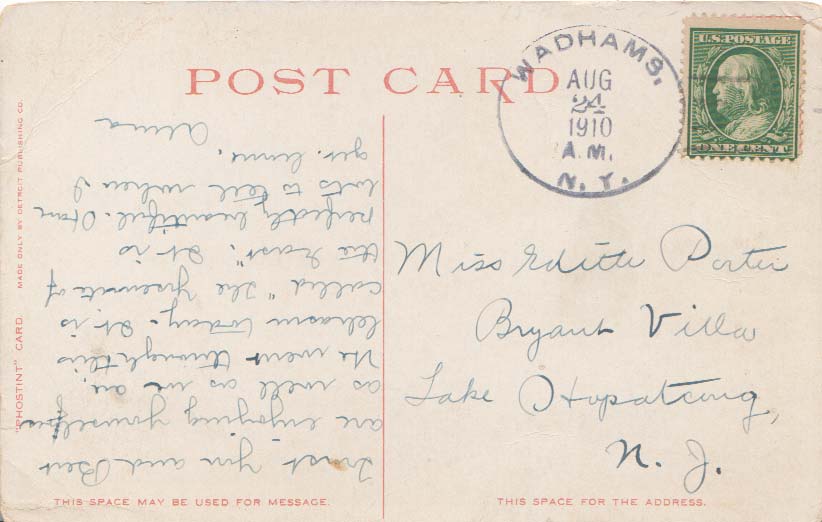 POST CARD
WADHAMS,
AUG
24
1910
A.M.
N. Y.
U.S. POSTAGE
ONE CENT
Trust you and Bert
are enjoying yourselfs
as well as we are.
We went through this
chasm today. It is
called "The Yosemite of
the East". It is
perfectly beautiful. Have
lots to tell when I
get home.
Alma
Miss Edith Porter
Bryant Villa
Lake Hopatcong,
N. J.
THIS SPACE MAY BE USED FOR MESSAGE.
THIS SPACE FOR THE ADDRESS.
"PHOSTINT" CARD. MADE ONLY BY DETROIT PUBLISHING CO.